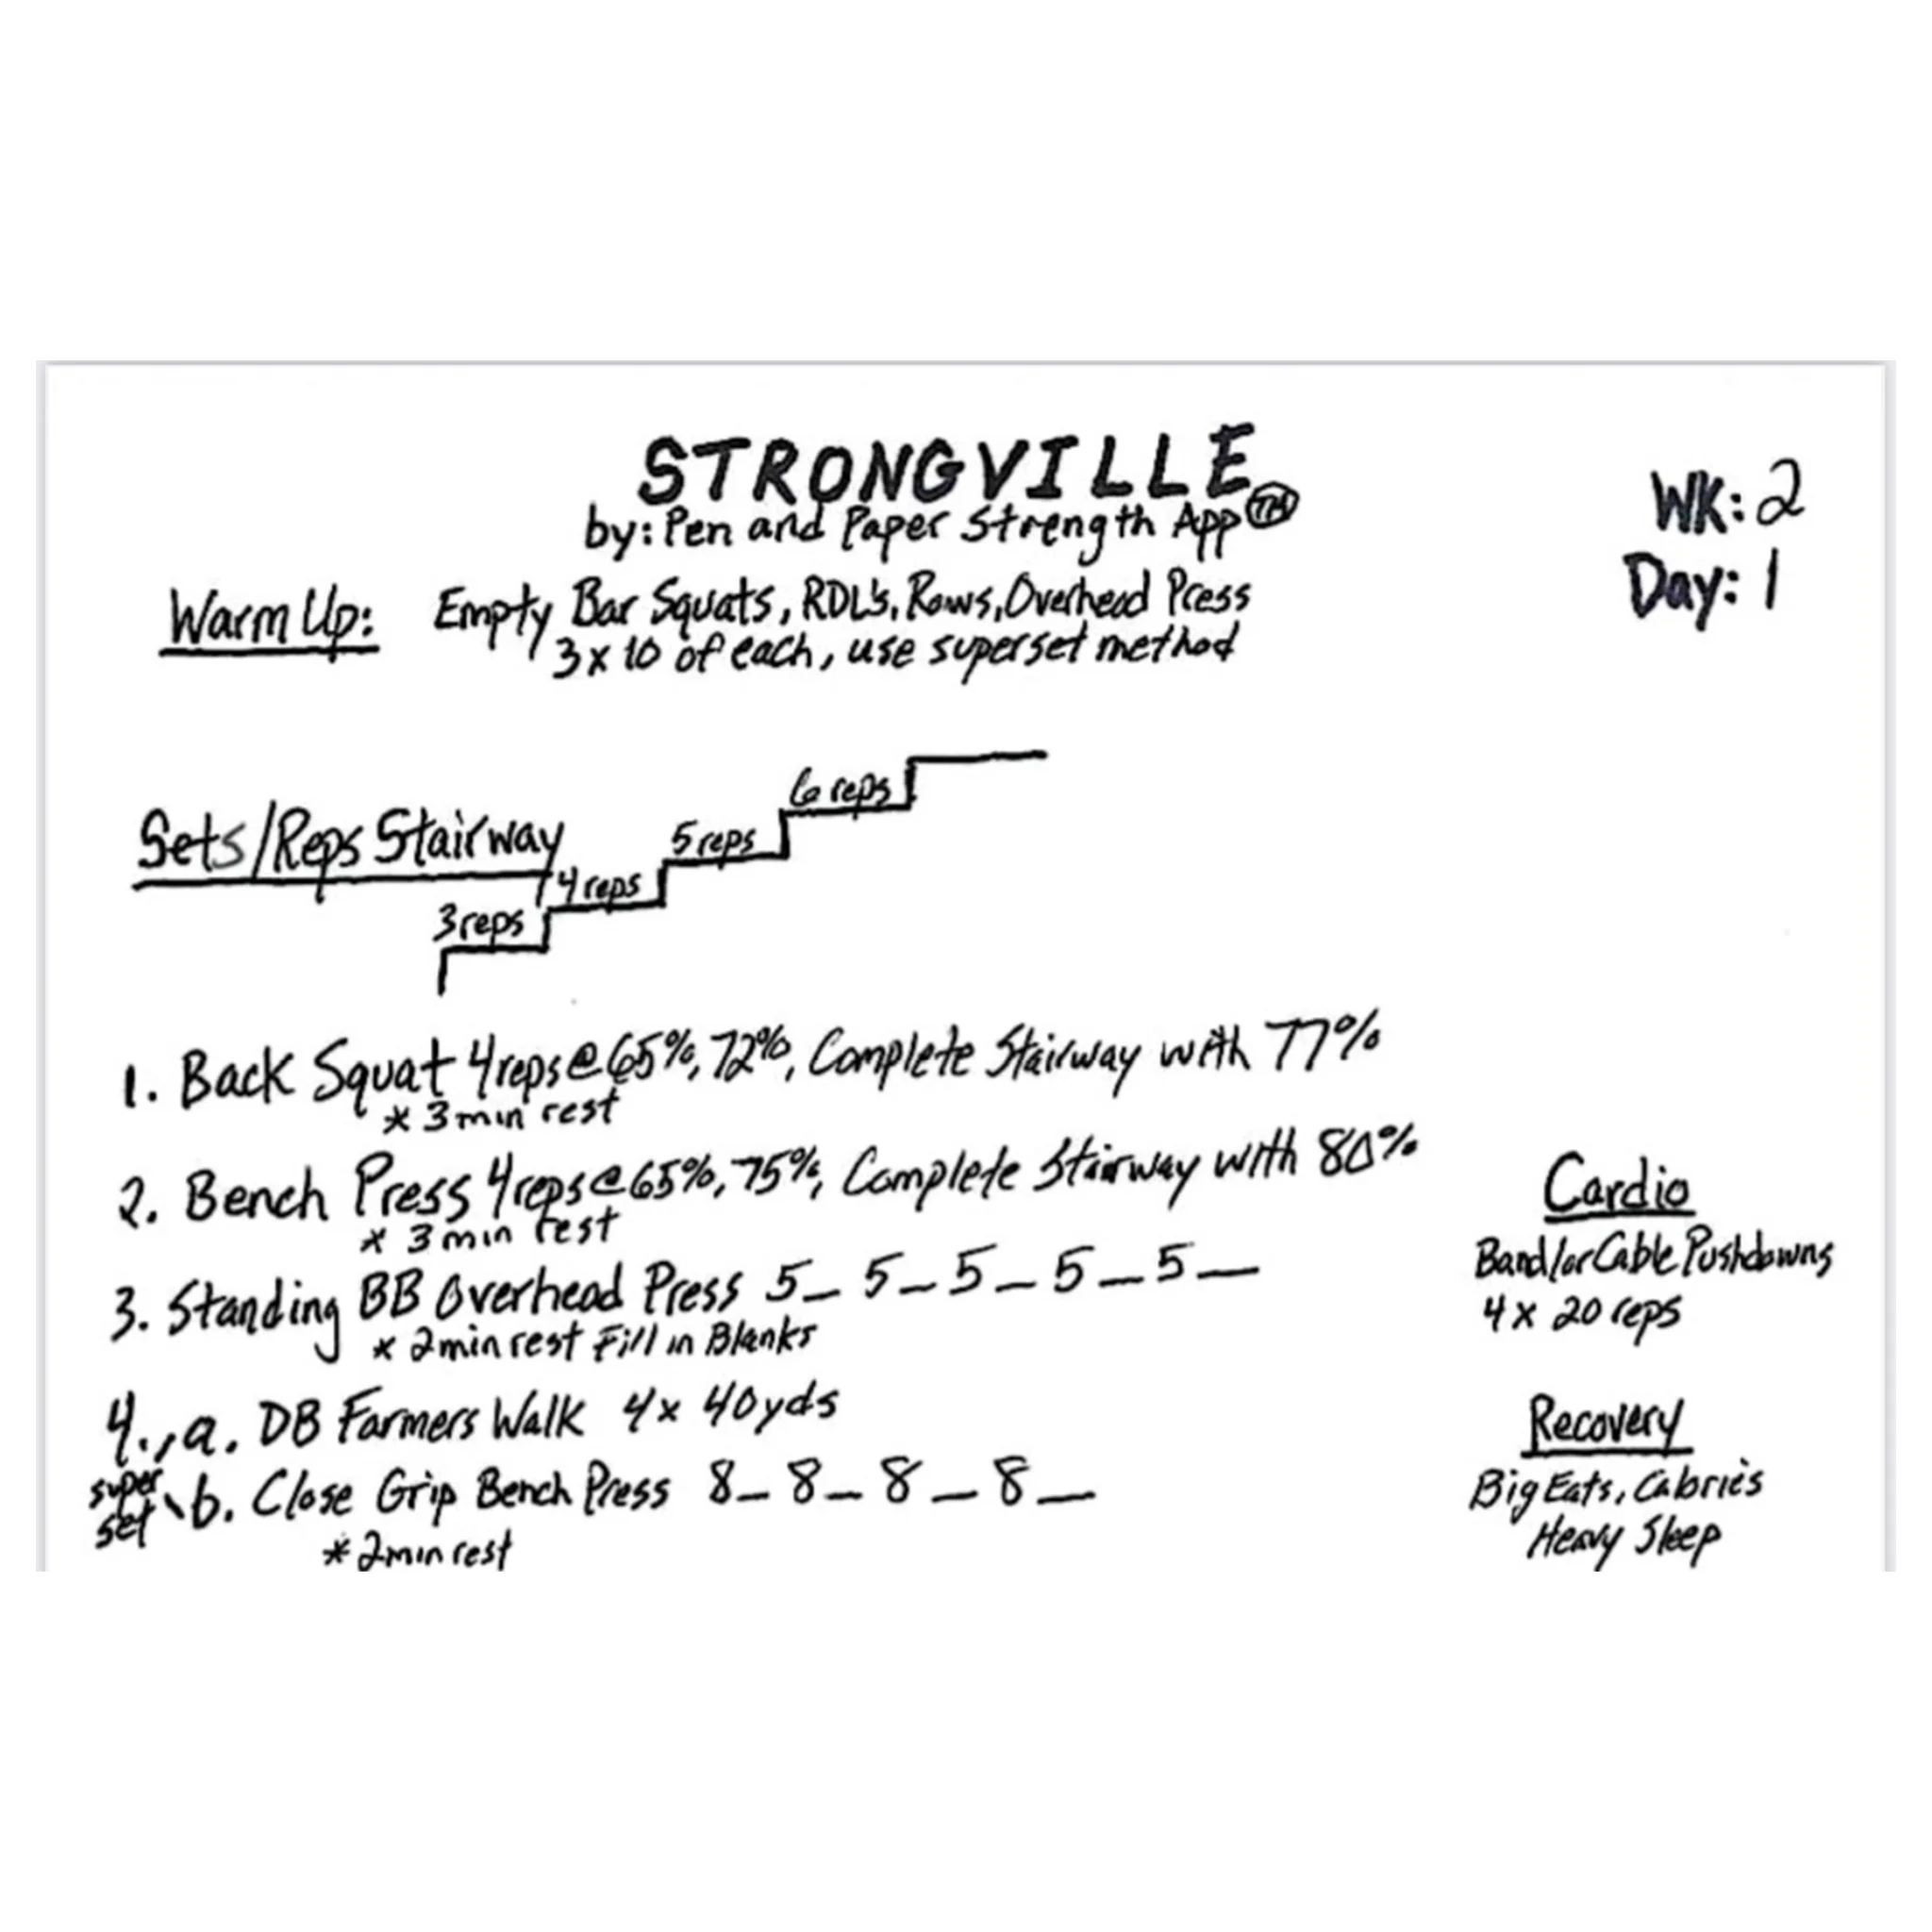 STRONGVILLE
by: Pen and Paper Strength App TM
WK: 2
Day: 1
Warm Up: Empty Bar Squats, RDL's, Rows, Overhead Press
3 x 10 of each, use superset method
Sets/Reps Stairway
3 reps
4 reps
5 reps
6 reps
1. Back Squat 4 reps @ 65%, 72%, Complete Stairway with 77%
* 3 min rest
2. Bench Press 4 reps @ 65%, 75%, Complete Stairway with 80%
* 3 min rest
3. Standing BB Overhead Press 5_ 5_ 5_ 5_ 5_
* 2 min rest Fill in Blanks
4., a. DB Farmers Walk 4 x 40 yds
super set \ b. Close Grip Bench Press 8_ 8_ 8_ 8_
* 2 min rest
Cardio
Band/or Cable Pushdowns
4 x 20 reps
Recovery
Big Eats, Calories
Heavy Sleep